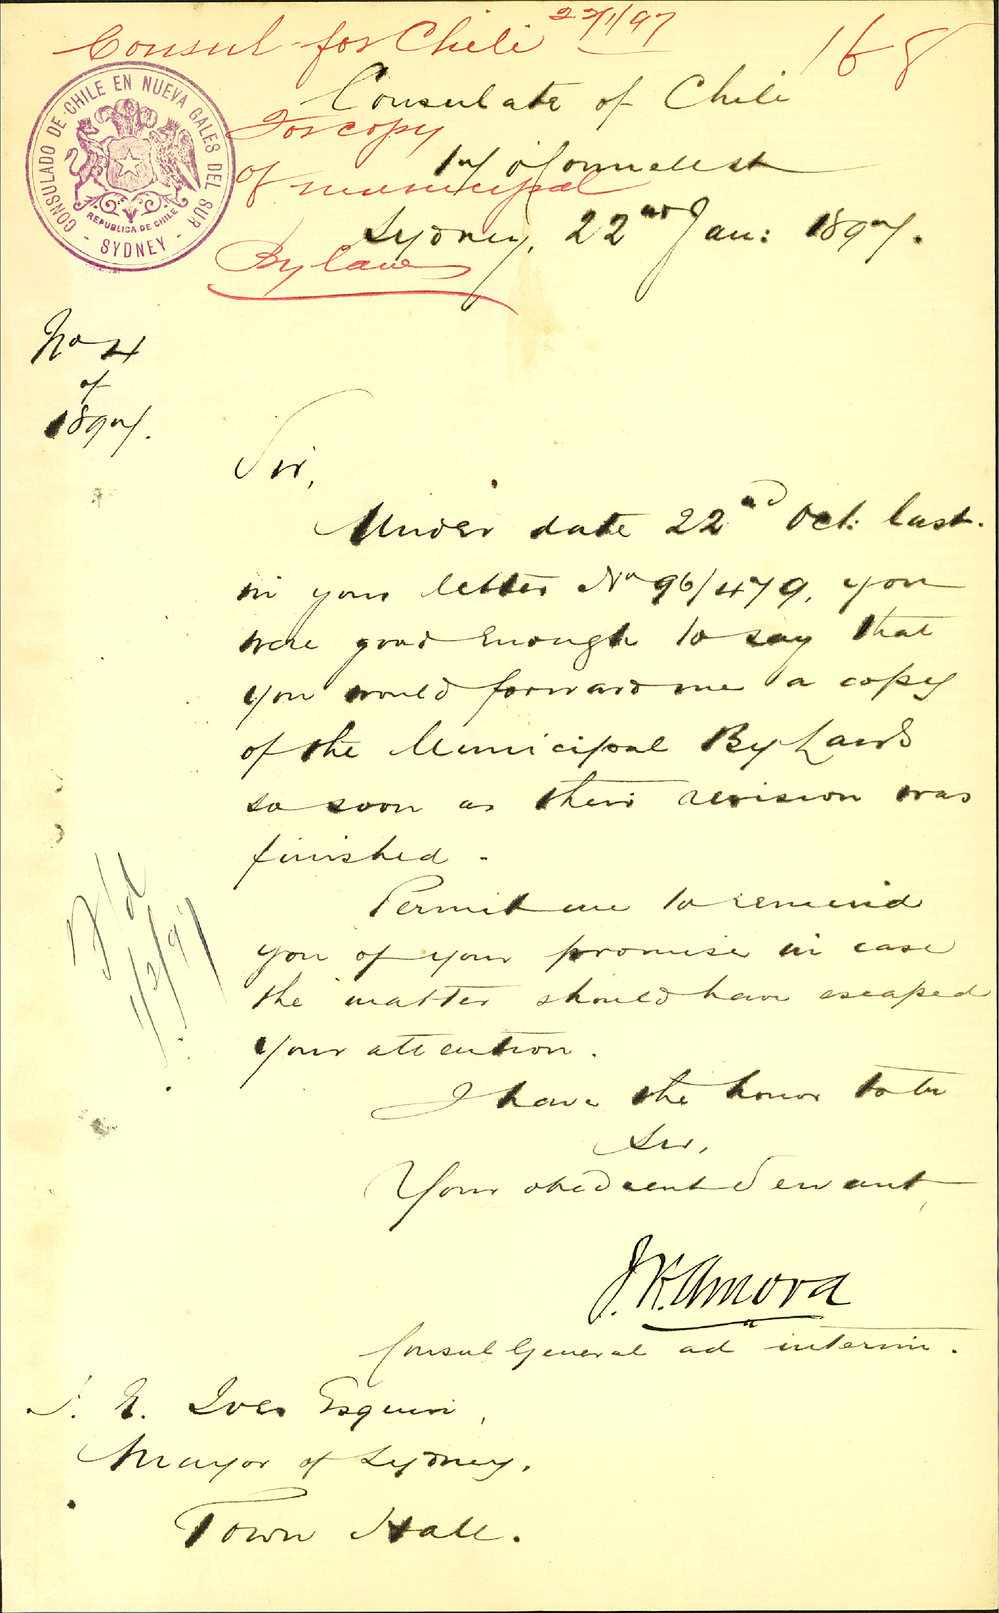 Consul for Chili 22/1/97
168
Consulate of Chili
For copy
17 O'Connell St
of municipal
Sydney, 22nd Jan: 1897.
By laws
CONSULADO DE CHILE EN NUEVA GALES DEL SUR
REPUBLICA DE CHILE
- SYDNEY -
No 4
of
1897.
Sir,
Under date 22nd Oct: last.
in your letter No 96/479, you
were good enough to say that
you would forward me a copy
of the Municipal By Laws
so soon as their revision was
finished.
Permit me to remind
you of your promise in case
the matter should have escaped
your attention.
1/2/97
I have the honor to be
Sir,
Your obedient Servant,
J. K. Amora
Consul General ad interim.
I. E. Ives Esquire,
Mayor of Sydney.
Town Hall.